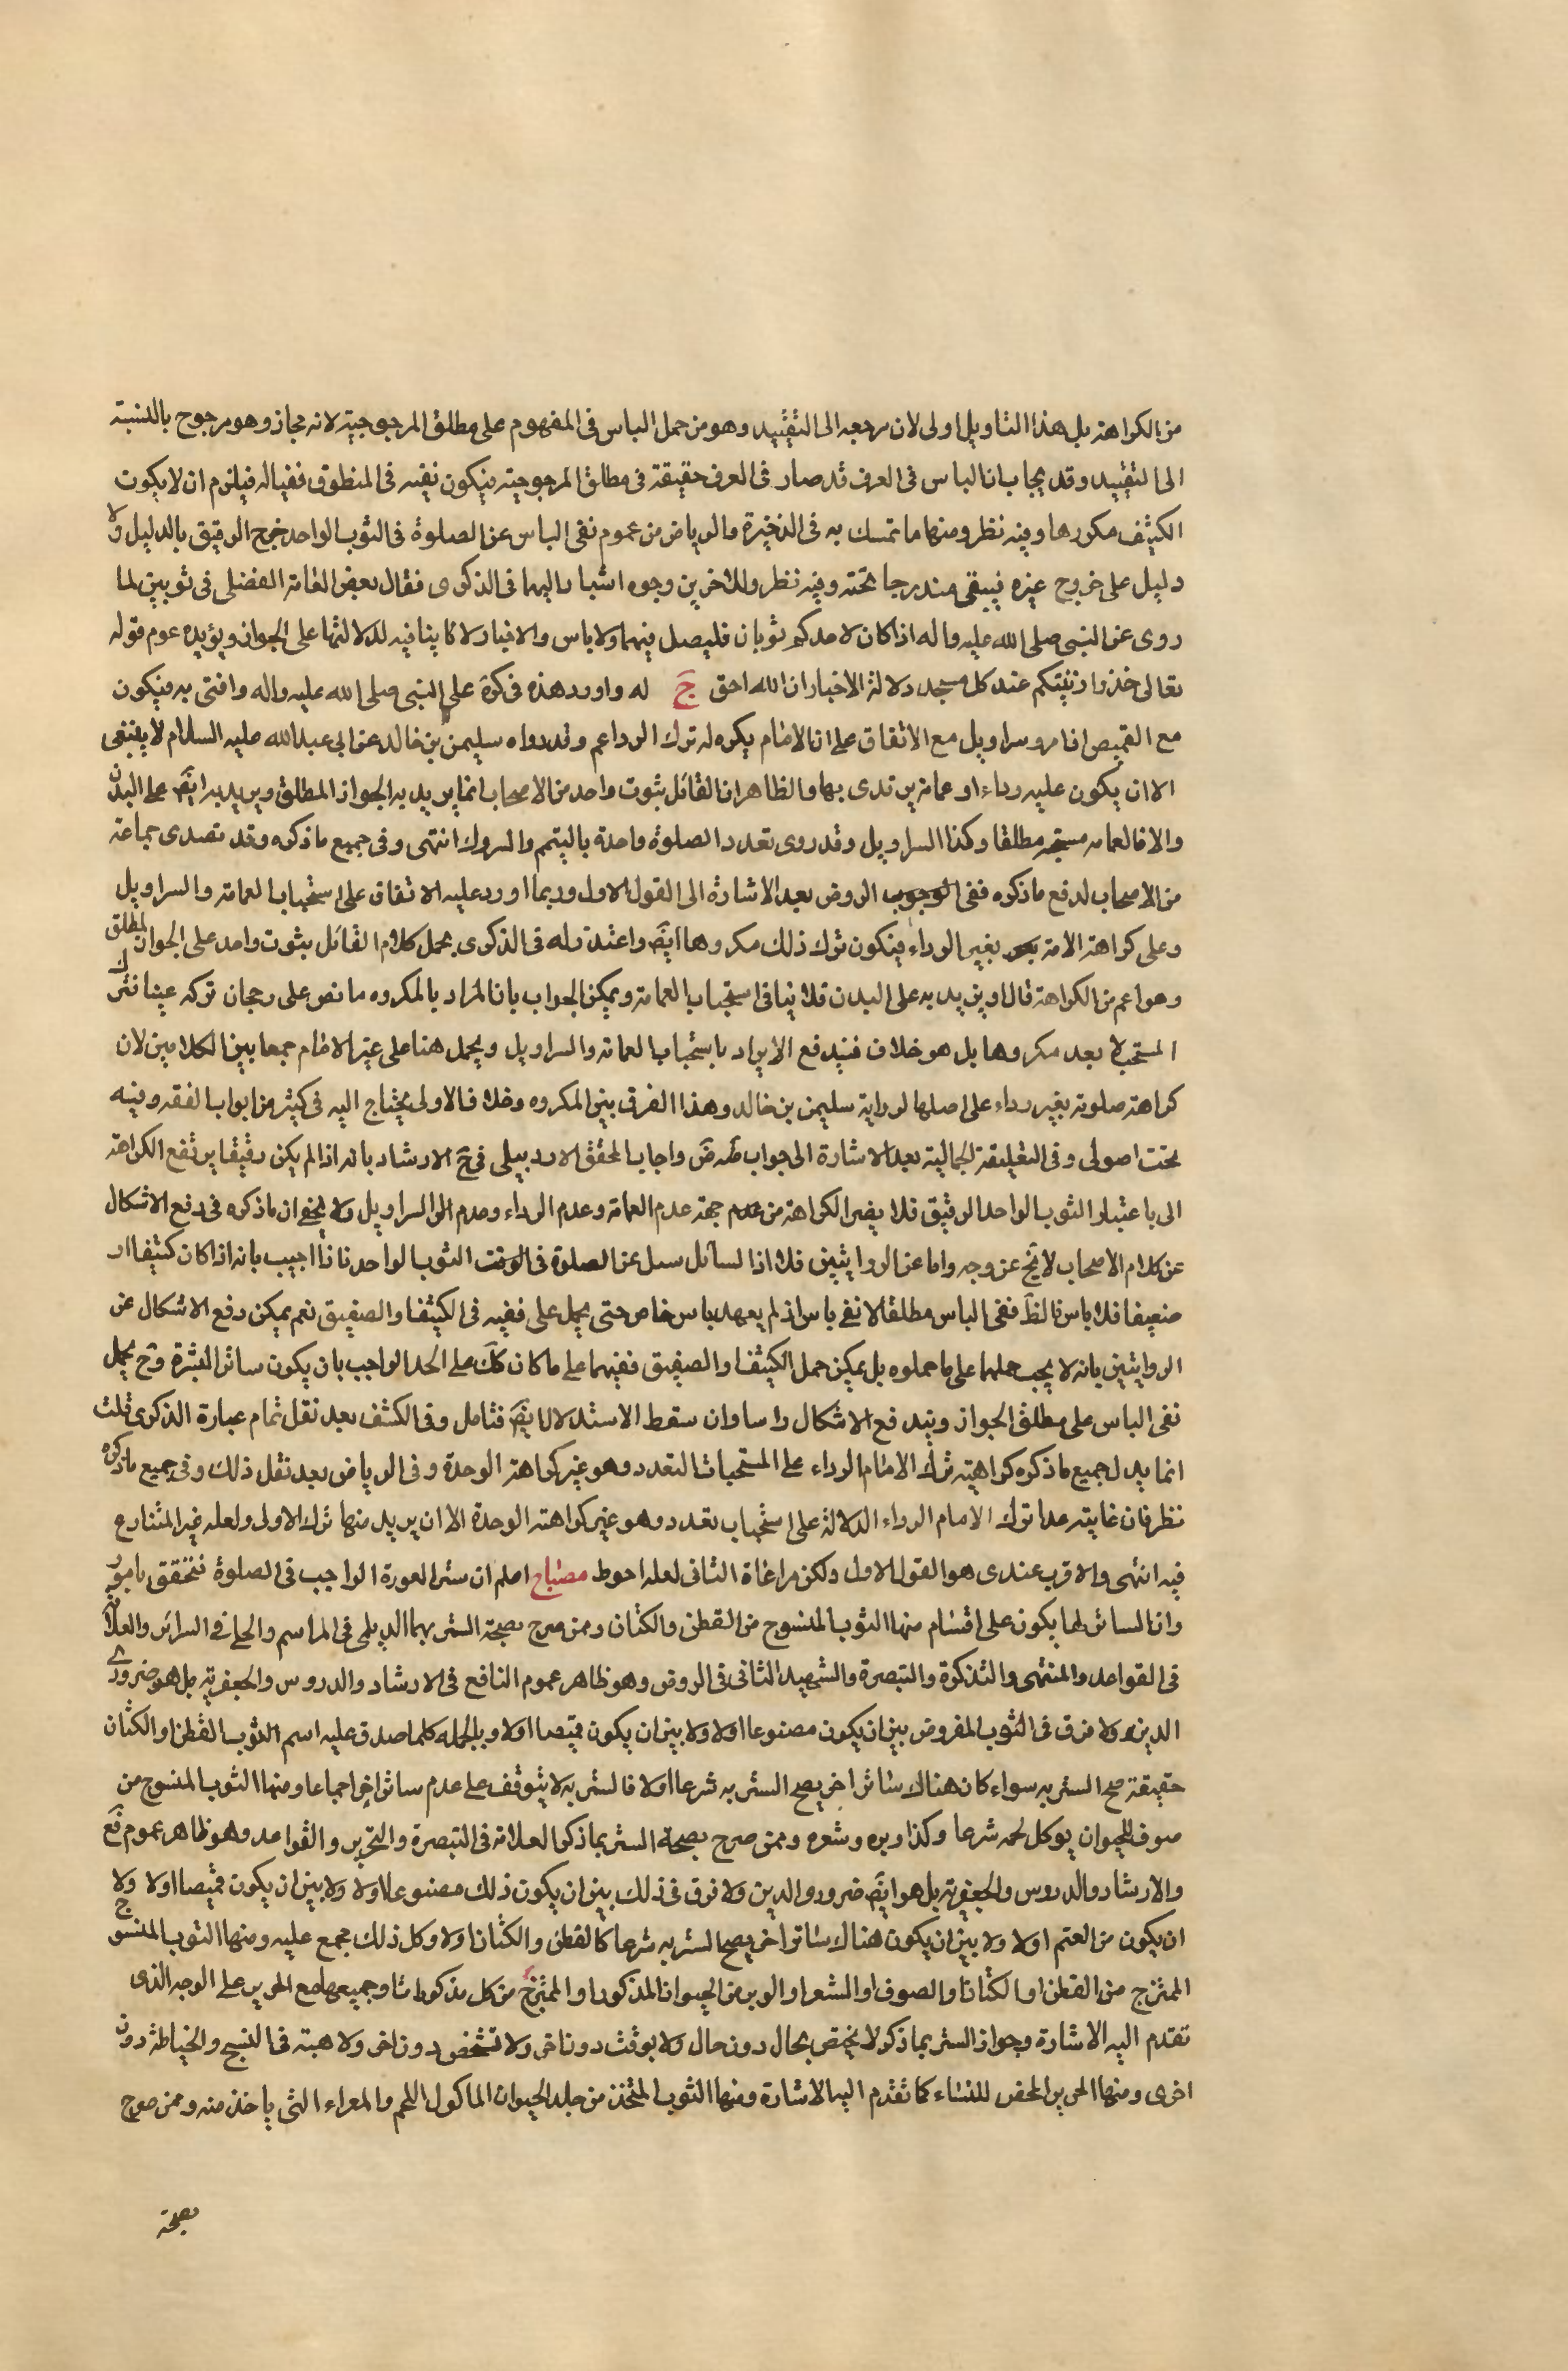 من الكراهة بل هذا التاويل اولى لان مرجعه الى التقييد وهو من حمل الباس فى المفهوم على مطلق المرجوحية لانه مجاز وهو مرجوح بالنسبة
الى التقييد وقد يجاب بان الباس فى العرف قد صار فى العرف حقيقة فى مطلق المرجوحية فيكون نفيه فى المنطوق نفيا له فيلزم ان لا يكون
الكثيف مكروها وفيه نظر ومنها ما تمسك به فى الذخيرة والرياض من عموم نفى الباس عن الصلوة فى الثوب الواحد خرج الرقيق بالدليل ولا
دليل على خروج غيره فيبقى مندرجا تحته وفيه نظر وللاخرين وجوه اشار اليها فى الذكرى فقال بعض العامة الفضل فى ثوبين لما
روى عن النبى صلى الله عليه واله اذا كان لاحدكم ثوبان فليصل فيهما ولا باس والاخبار لا تنافيه لدلالتها على الجواز ويؤيده عموم قوله
تعالى خذوا زينتكم عند كل مسجد دلالة الاخبار ان الله احق جَ له واورد هذه فى كرَة على النبى صلى الله عليه واله وافتى به فيكون
مع القميص ازار وسراويل مع الاتفاق على ان الامام يكره له ترك الرداء وقد رواه سليمن بن خالد عن ابى عبد الله عليه السلام لا ينبغى
الا ان يكون عليه رداء او عمامة يرتدى بها والظاهر ان القائل بثوب واحد من الاصحاب انما يريد به الجواز المطلق ويريد به ايضَ على البدن
والا فالعمامه مستحبه مطلقا وكذا السراويل وقد روى تعدد الصلوة واحدة بالتعمم والسروك انتهى وفى جميع ما ذكره وقد تصدى جماعة
من الاصحاب لدفع ما ذكره ففى الوجوب الروض بعد الاشارة الى القول الاول وربما اورد عليه الاتفاق على استحباب العمامة والسراويل
وعلى كراهة الامامة بغير الرداء فيكون ترك ذلك مكروها ايضَ واعتذر له فى الذكرى بحمل كلام القائل بثوب واحد على الجواز المطلق
وهو اعم من الكراهة قال او يريد به على البدن فلا ينافى استحباب العمامة ويمكن الجواب بان المراد بالمكروه ما نص على رجحان تركه عينا فترك
المستحب لا يعد مكروها بل هو خلاف فيندفع الايراد باستحباب العمامة والسراويل ويحمل هنا على غير الامام جمعا بين الكلامين لان
كراهة صلوته بغير رداء على اصلها لرواية سليمن بن خالد وهذا الفرق بين المكروه وخلاف الاولى يحتاج اليه فى كثير من ابواب الفقه وفيه
بحث اصولى وفى التعليقة الجمالية بعد الاشارة الى جواب ضَ واجاب المحقق الاردبيلى فى حَ الارشاد بانه اذا لم يكن رقيقا يرتفع الكراهة
الى باعتبار الثوب الواحد الرقيق فلا يضر الكراهة من عدم جهة عدم العمامة وعدم الرداء وعدم السراويل ولا يخفى ان ما ذكره فى دفع الاشكال
عن كلام الاصحاب لا يخَ عن وجه واما عن الروايتين فلا اذا لسائل سئل عن الصلوة فى الثوب الواحد فاذا اجيب بانه اذا كان كثيفا او
صفيقا فلا باس فالظَ نفى الباس مطلقا لا نفى باس اذ لم يعهد باس خاص حتى يحمل على نفيه فى الكثيف والصفيق نعم يمكن دفع الاشكال عن
الروايتين بانه لا يجب حملهما على ما حملوه بل يمكن حمل الكثيف والصفيق فيهما على ما كان كلَ على الحد الواجب بان يكون ساتر البشرة وحَ يحمل
نفى الباس على مطلق الجواز ويندفع الاشكال راسا وان سقط الاستدلال ايضَ فتامل وفى الكشف بعد نقل تمام عبارة الذكرى قلت
انما يدل جميع ما ذكره كراهية ترك الامام الرداء على المستحبات التعدد وهو غير كراهة الوحدة وفى الرياض بعد نقل ذلك وفى جميع ما ذكره
نظر فان غايته عدا ترك الامام الرداء الدلالة على استحباب تعدد وهو غير كراهة الوحدة الا ان يريد منها ترك الاولى ولعله غير المتنازع
فيه انتهى والاقرب عندى هو القول الاول ولكن مراعاة الثانى لعله احوط مصباح اعلم ان ستر العورة الواجب فى الصلوة يتحقق بامور
وان الساتر لها يكون على اقسام منها الثوب المنسوج من القطن والكتان وممن صرح بصحة الستر بهما الديلمى فى المراسم والحلى فى السرائر والعلامة
فى القواعد والمنتهى والتذكرة والتبصرة والشهيد الثانى فى الروض وهو ظاهر عموم النافع فى الارشاد والدروس والجعفرية بل هو ضرورى
الدين ولا فرق فى الثوب المفروض بين ان يكون مصنوعا اولا ولا بين ان يكون قميصا اولا وبالجمله كلما صدق عليه اسم الثوب القطن او الكتان
حقيقة صح الستر به سواء كان هناك ساتر اخر يصح الستر به شرعا اولا فالستر به لا يتوقف على عدم ساتر اخر اجماعا ومنها الثوب المنسوج من
صوف الحيوان يوكل لحمه شرعا وكذا وبره وشعره وممن صرح بصحة الستر بما ذكر العلامة فى التبصرة والتحرير والقواعد وهو ظاهر عموم فَع
والارشاد والدروس والجعفرية بل هو ايضَ ضرورى الدين ولا فرق فى ذلك بين ان يكون ذلك مصنوعا اولا ولا بين ان يكون قميصا اولا ولا
ان يكون من الغنم اولا ولا بين ان يكون هناك ساتر اخر يصح الستر به شرعا كالقطن والكتان اولا وكل ذلك مجمع عليه ومنها الثوب المنسوج
الممتزج من القطن او الكتان او الصوف او الشعر او الوبر من الحيوان المذكور او الممتزج من كل مذكور او جميعها مع الحرير على الوجه الذى
تقدم اليه الاشارة وجواز الستر بما ذكر لا يختص بحال دون حال ولا بوقت دون اخر ولا تشخص دون اخر ولا هيئة فى النسج والخياطة دون
اخرى ومنها الحرير المحض للنساء كما تقدم اليه الاشارة ومنها الثوب المتخذ من جلد الحيوان الماكول اللحم والمعراء التى ياخذ منه وممن صرح
بصحة